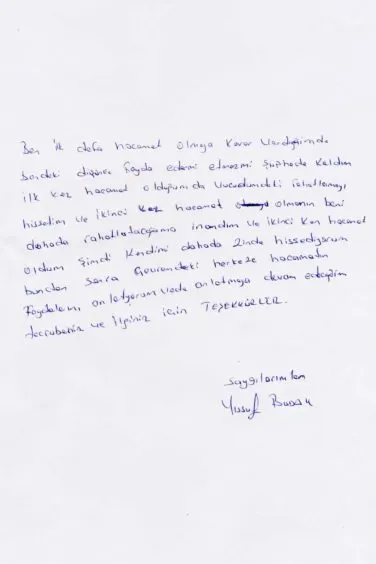 Ben ilk defa hacamat olmaya karar verdiğimde
fayda edermi etmezmi şüphede kaldım
ilk kez hacamat olduğumda vucudumdaki rahatlamayı
hissetim ve ikinci kez hacamat olmanın beni
dahada rahatlatacağına inandım ve ikinci kan hacamat
oldum şimdi kendimi dahada zinde hissediyorum
bundan sonra çevremdeki herkeze hacamatın
faydalarını anlatıyorum anlatmaya devam edeceğim
ve ilginiz için TEŞEKKÜRLER.
saygılarımlan
Yusuf